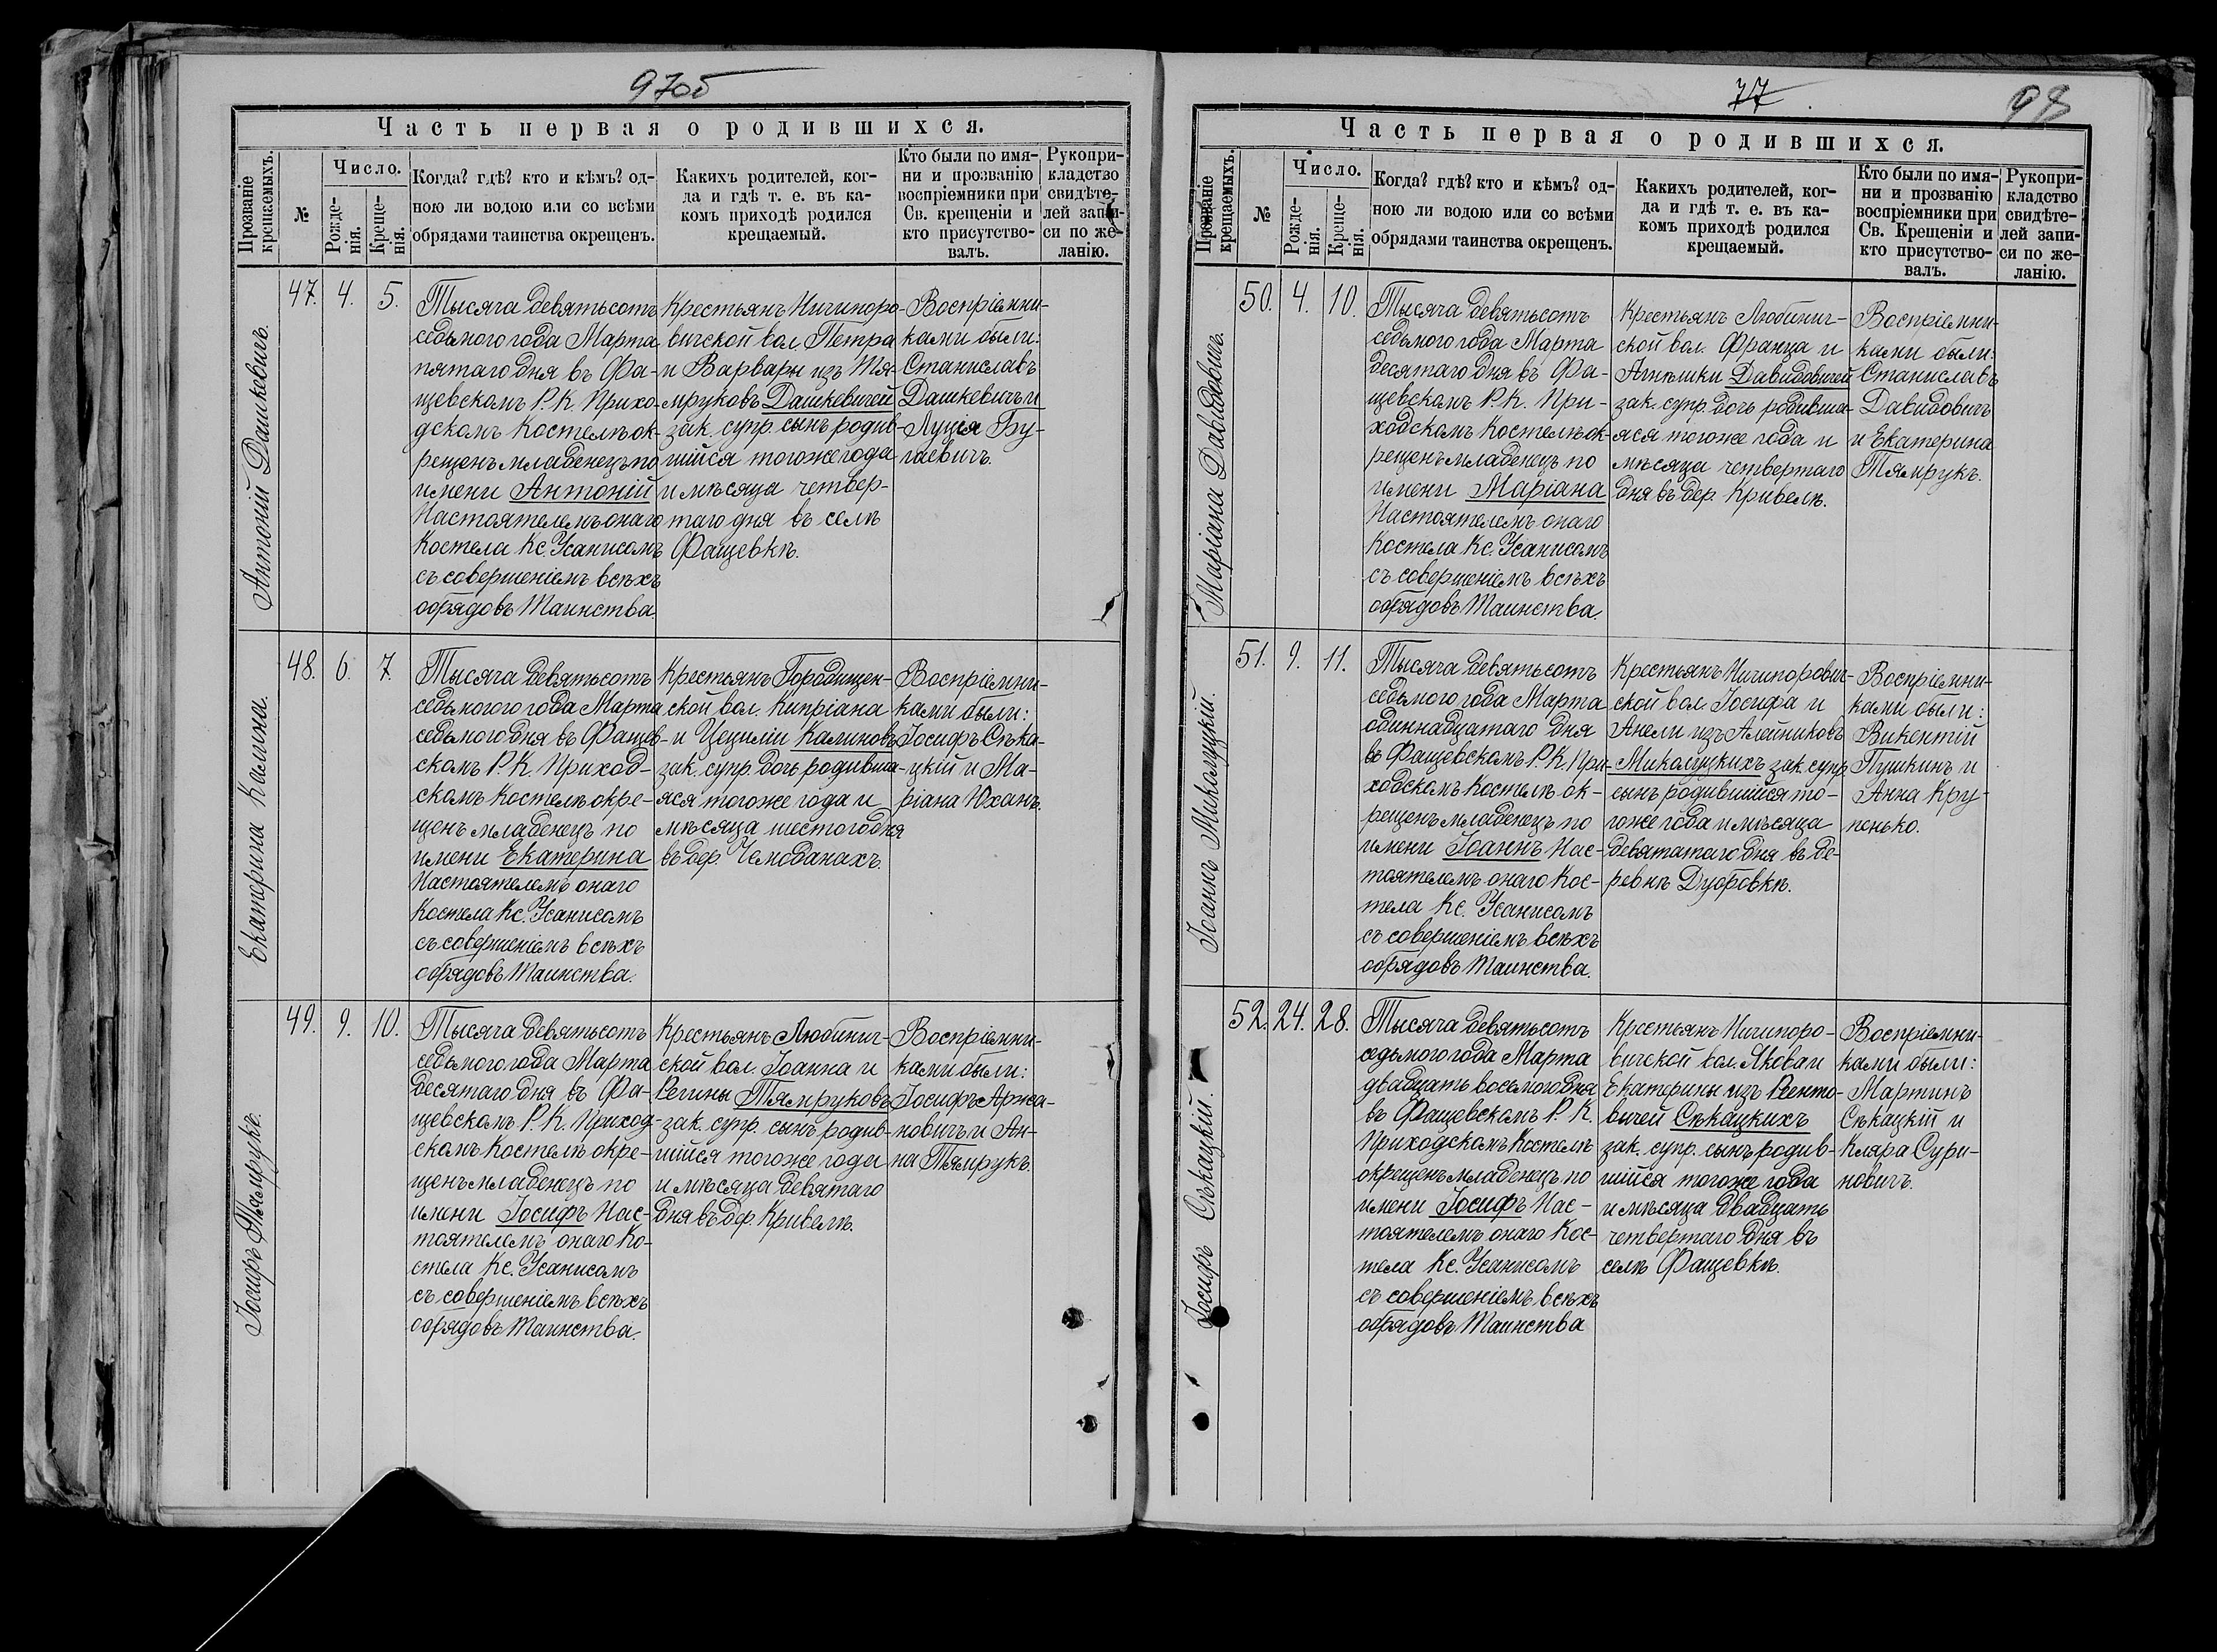 97об
Часть первая о родившихся.
Прозваніе крещаемыхъ.
№
Число.
Рожде-
нія.
Креще-
нія.
Когда? гдѣ? кто и кѣмъ? од-
ною ли водою или со всѣми
обрядами таинства окрещенъ.
Какихъ родителей, ког-
да и гдѣ т. е. въ ка-
комъ приходѣ родился
крещаемый.
Кто были по имя-
ни и прозванію
воспріемники при
Св. крещеніи и
кто присутство-
валъ.
Рукопри-
кладство
свидѣте-
лей запи-
си по же-
ланію.
Антоній Дашкевичъ.
47. 4. 5.
Тысяча девятьсотъ
седьмого года Марта
пятаго дня въ Фа-
щевскомъ Р. К. Прихо-
дскомъ Костелѣ ок-
рещенъ младенецъ по
имени Антоній
Настоятелемъ онаго
Костела Кс. Усанисомъ
съ совершеніемъ всѣхъ
обрядовъ Таинства.
Крестьянъ Ничипоро-
вичской вол. Петра
и Варвары изъ Тя-
мруковъ Дашкевичей
зак. супр. сынъ родив-
шійся того же года
и мѣсяца четвер-
таго дня въ селѣ
Фащевкѣ.
Воспріемни-
ками были:
Станиславъ
Дашкевичъ и
Луція Бу-
гаевичъ.
Екатерина Калина.
48. 6. 7.
Тысяча девятьсотъ
седьмого года Марта
седьмого дня въ Фащев-
скомъ Р. К. Приход-
скомъ Костелѣ окре-
щенъ младенецъ по
имени Екатерина
Настоятелемъ онаго
Костела Кс. Усанисомъ
съ совершеніемъ всѣхъ
обрядовъ Таинства.
Крестьянъ Городищен-
ской вол. Кипріана
и Цециліи Калиновъ
зак. супр. дочь родивша-
яся того же года и
мѣсяца шестого дня
въ дер. Чемоданахъ.
Воспріемни-
ками были:
Іосифъ Сѣка-
цкій и Ма-
ріана Юханъ.
Іосифъ Тямрукъ.
49. 9. 10.
Тысяча девятьсотъ
седьмого года Марта
десятаго дня въ Фа-
щевскомъ Р. К. Приход-
скомъ Костелѣ окре-
щенъ младенецъ по
имени Іосифъ Нас-
тоятелемъ онаго Ко-
стела Кс. Усанисомъ
съ совершеніемъ всѣхъ
обрядовъ Таинства.
Крестьянъ Любинич-
ской вол. Іоанна и
Регины Тямруковъ
зак. супр. сынъ родив-
шійся того же года
и мѣсяца девятаго
дня въ дер. Кривелѣ.
Воспріемни-
ками были:
Іосифъ Аржа-
новичъ и Ан-
на Тямрукъ.
77
98
Часть первая о родившихся.
Прозваніе крещаемыхъ.
№
Число.
Рожде-
нія.
Креще-
нія.
Когда? гдѣ? кто и кѣмъ? од-
ною ли водою или со всѣми
обрядами таинства окрещенъ.
Какихъ родителей, ког-
да и гдѣ т. е. въ ка-
комъ приходѣ родился
крещаемый.
Кто были по имя-
ни и прозванію
воспріемники при
Св. Крещеніи и
кто присутство-
валъ.
Рукопри-
кладство
свидѣте-
лей запи-
си по же-
ланію.
Маріана Давидовичъ.
50. 4. 10.
Тысяча девятьсотъ
седьмого года Марта
десятаго дня въ Фа-
щевскомъ Р. К. При-
ходскомъ Костелѣ ок-
рещенъ младенецъ по
имени Маріана
Настоятелемъ онаго
Костела Кс. Усанисомъ
съ совершеніемъ всѣхъ
обрядовъ Таинства.
Крестьянъ Любинич-
ской вол. Франца и
Агнешки Давидовичей
зак. супр. дочь родивша-
яся того же года и
мѣсяца четвертаго
дня въ дер. Кривелѣ.
Воспріемни-
ками были:
Станиславъ
Давидовичъ
и Екатерина
Тямрукъ.
Іоаннъ Миколуцкій.
51. 9. 11.
Тысяча девятьсотъ
седьмого года Марта
одиннадцатаго дня
въ Фащевскомъ Р. К. При-
ходскомъ Костелѣ ок-
рещенъ младенецъ по
имени Іоаннъ Нас-
тоятелемъ онаго Кос-
тела Кс. Усанисомъ
съ совершеніемъ всѣхъ
обрядовъ Таинства.
Крестьянъ Ничипорович-
ской вол. Іосифа и
Анели изъ Алейниковъ
Миколуцкихъ зак. супр.
сынъ родившійся то-
гоже года и мѣсяца
девятатаго дня въ де-
ревнѣ Дубровкѣ.
Воспріемни-
ками были:
Викентій
Пушкинъ и
Анна Кру-
пенько.
Іосифъ Сѣкацкій.
52. 24. 28.
Тысяча девятьсотъ
седьмого года Марта
двадцать восьмого дня
въ Фащевскомъ Р. К.
Приходскомъ Костелѣ
окрещенъ младенецъ по
имени Іосифъ Нас-
тоятелемъ онаго Кос-
тела Кс. Усанисомъ
съ совершеніемъ всѣхъ
обрядовъ Таинства
Крестьянъ Ничипоро-
вичской вол. Якова и
Екатерины изъ Венто-
вичей Сѣкацкихъ
зак. супр. сынъ родив-
шійся того же года
и мѣсяца двадцать
четвертаго дня въ
селѣ Фащевкѣ.
Воспріемни-
ками были:
Мартинъ
Сѣкацкій и
Кляра Сури-
новичъ.